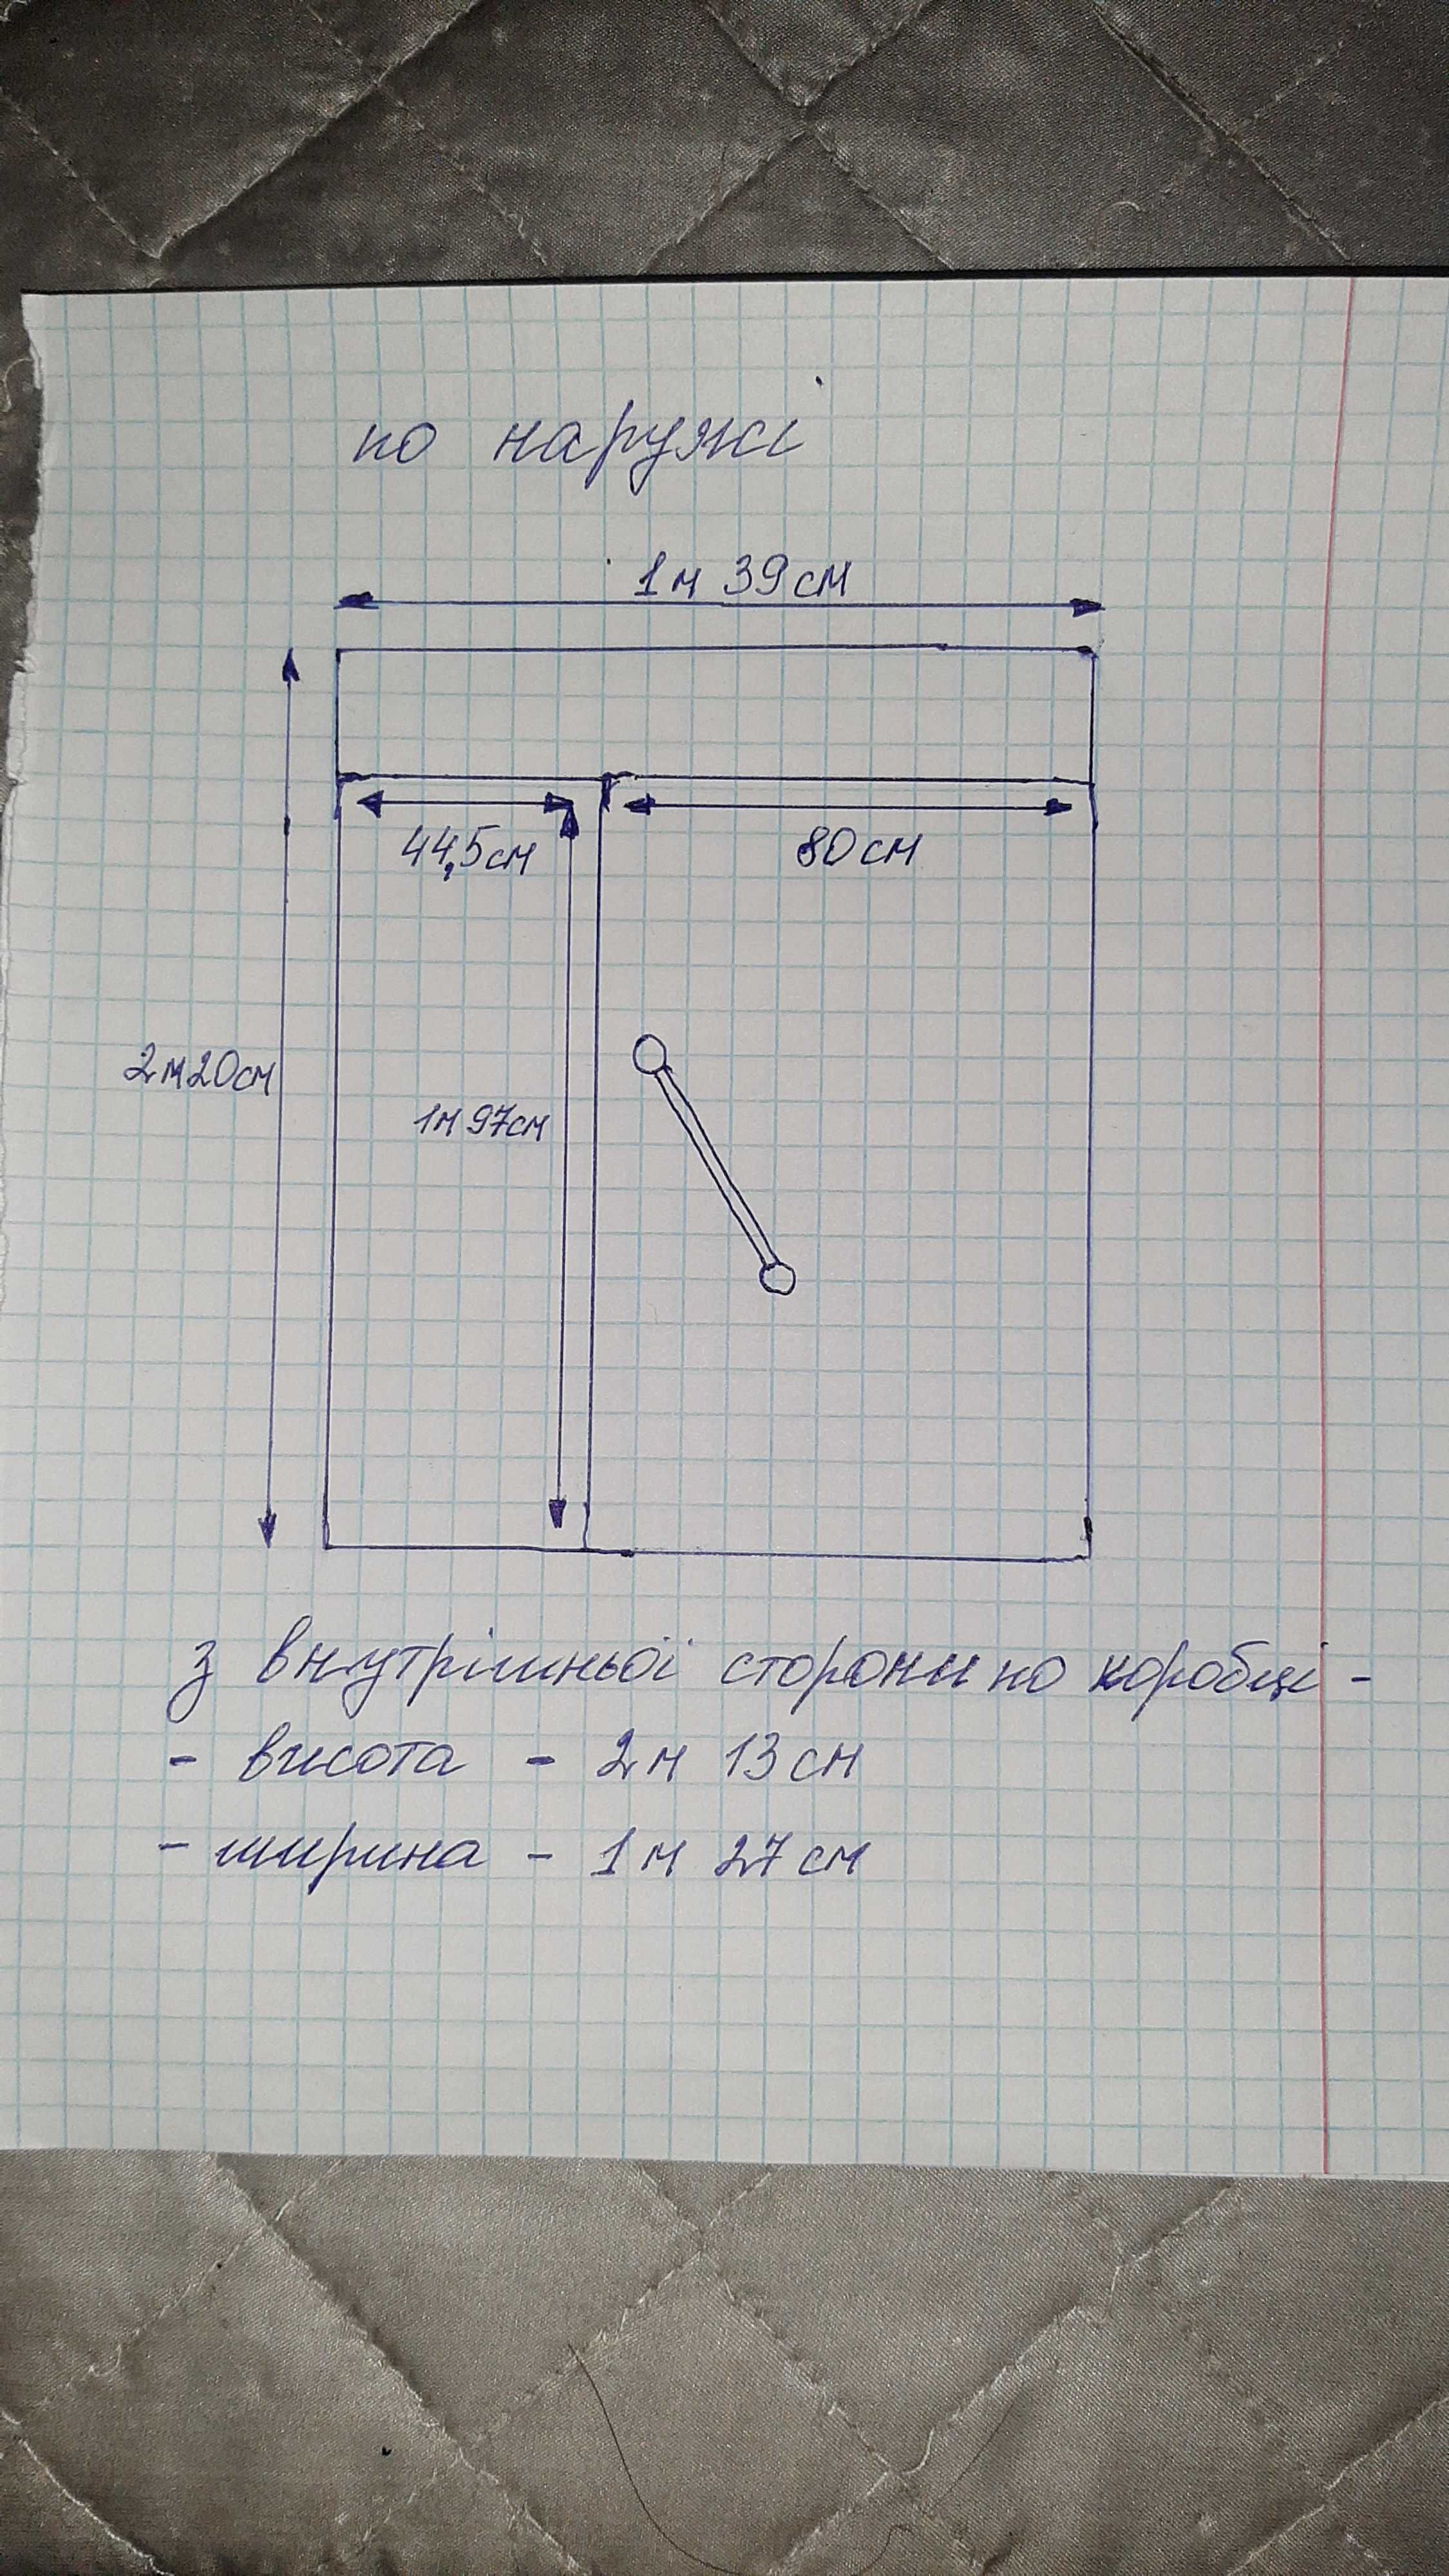 по наружі
1м 39см
44,5см
80см
2м20см
1м 97см
з внутрішньої сторони по коробці -
- висота - 2м 13см
- ширина - 1м 27см